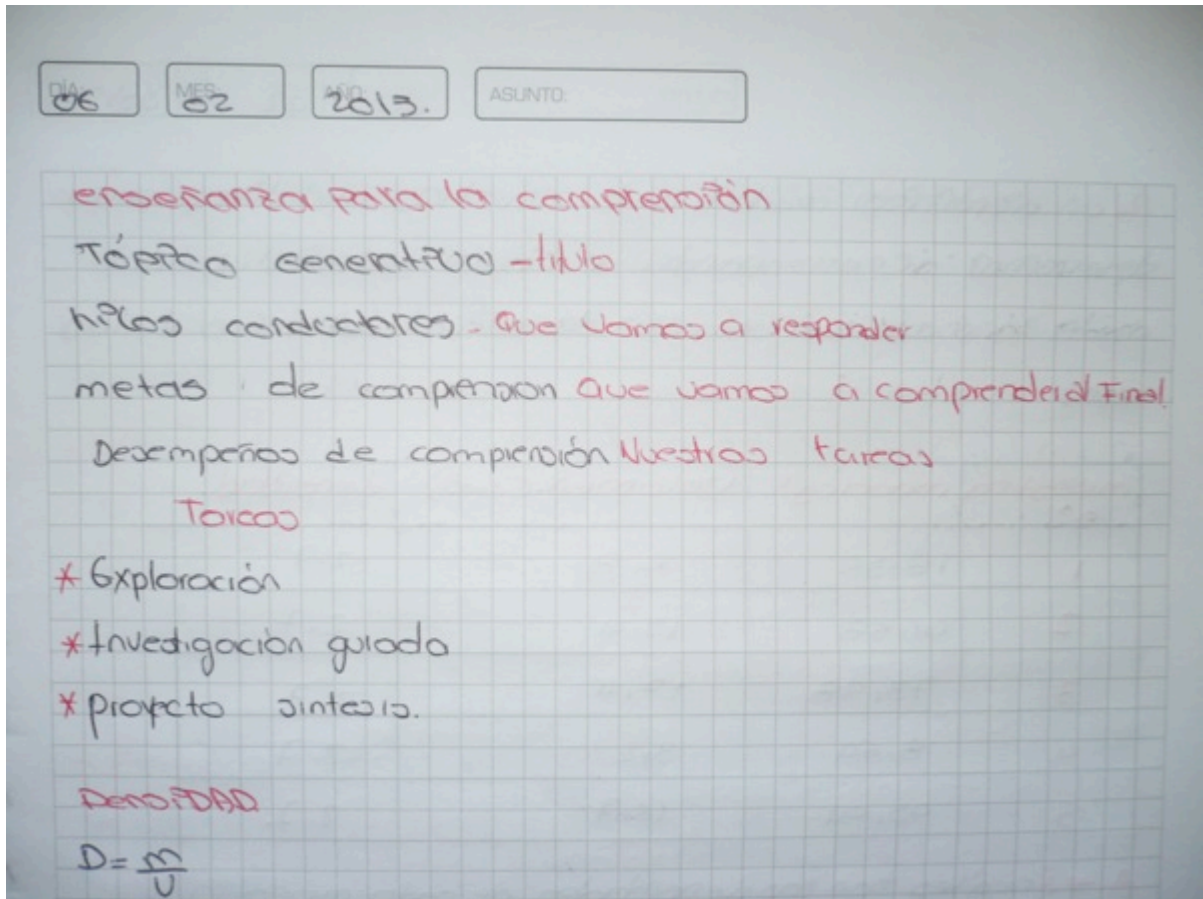 DÍA: 06 MES: 02 AÑO: 2013. ASUNTO:
enseñanza para la comprensión
Tópico Generativo - titulo
hilos conductores - Que vamos a responder
metas de comprension Que vamos a comprender al Final.
Desempeños de comprensión Nuestras tareas
Tareas
* Exploración
* Investigación guiada
* proyecto sintesis.
DensiDAD
D = m/v